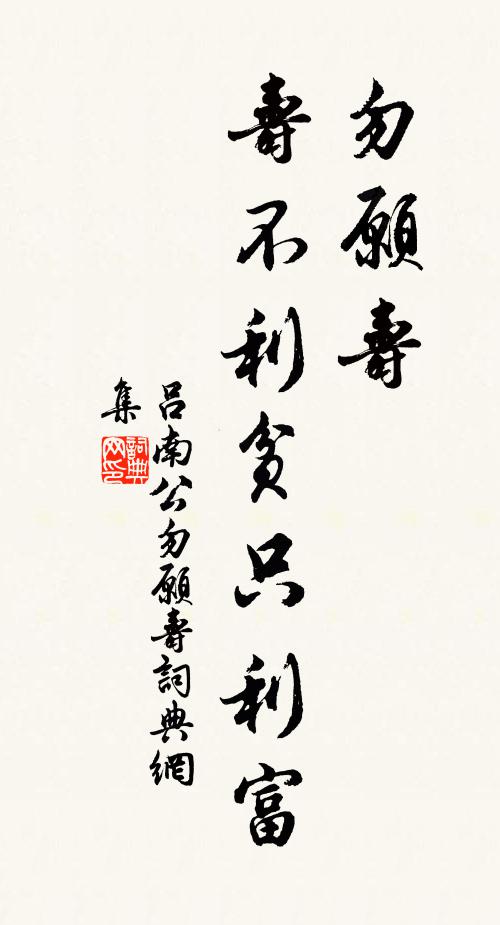 勿願壽
壽不利貧只利富
呂南公勿願壽詞典網
集
詞典網印